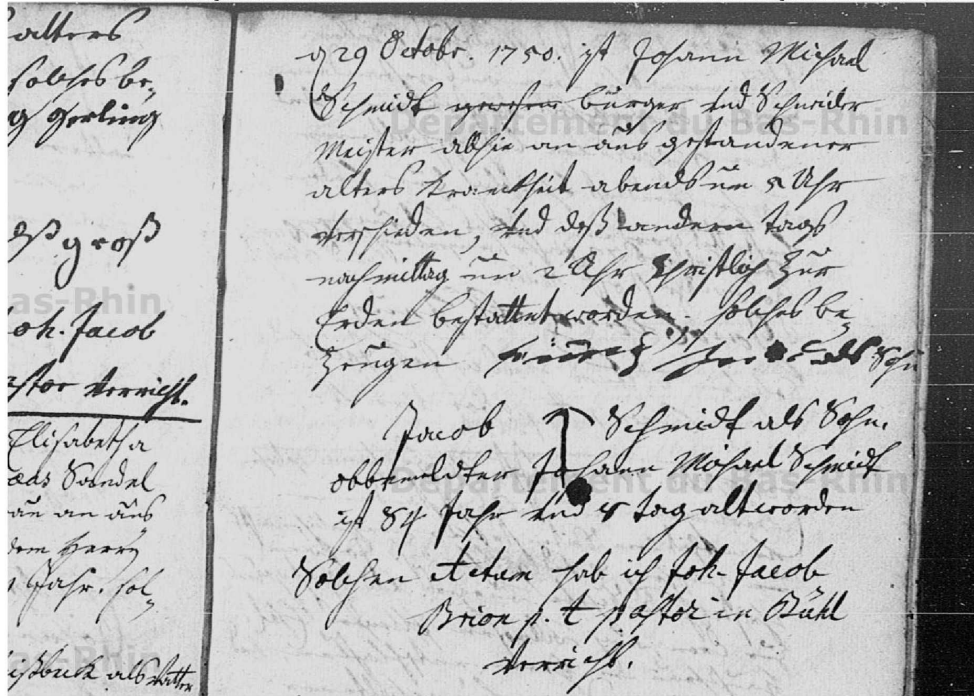 alters
solches be,
Gerling
groß
Joh. Jacob
Pastor verricht.
Elisabetha
Sandel
an aus
dem herrn
Jahr. sol,
als Vatter
d 29 Octobr. 1750. ist Johann Michael
Schmidt gewesener burger und Schneider
Meister alhie an aus gestandener
alters Kranckheit abends um 5 Uhr
verschieden, und deß andern tags
nachmittag um 2 Uhr Christlich zur
Erden bestattet worden. solches be,
zeugen
Jacob Schmidt als Sohn.
obbemeldter Johann Michael Schmidt
ist 84 Jahr und 5 tag alt worden
Solchen Actum hab ich Joh. Jacob
Brion p. t. pastor in Bühl
verricht.
Département du Bas-Rhin
Département du Bas-Rhin
Bas-Rhin
Bas-Rhin